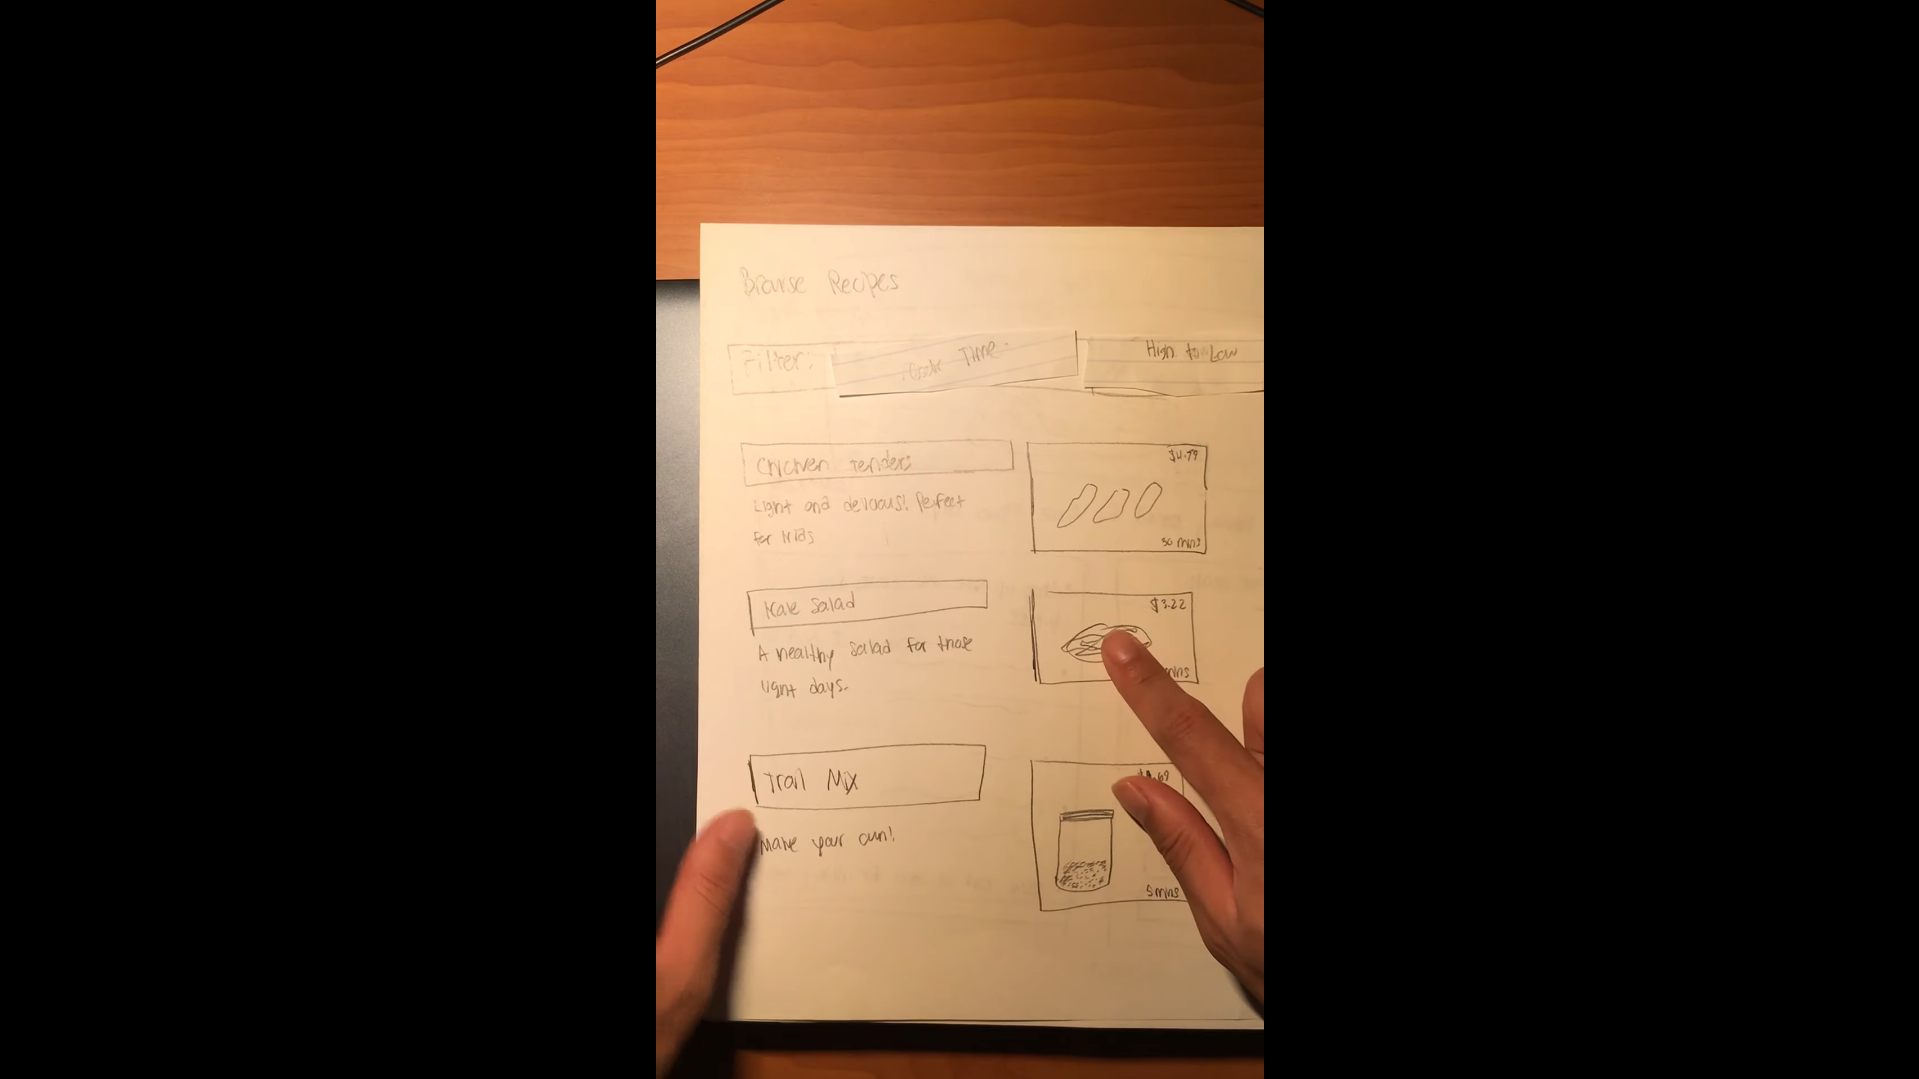 Browse Recipes
Filter:
Cook Time
High to Low
Chicken tenders
$4.79
Light and delicious! Perfect
for kids
30 mins
Kale Salad
$3.22
A healthy salad for those
light days.
mins
Trail Mix
Make your own!
5 mins